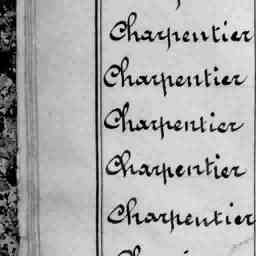 Charpentier
Charpentier
Charpentier
Charpentier
Charpentier